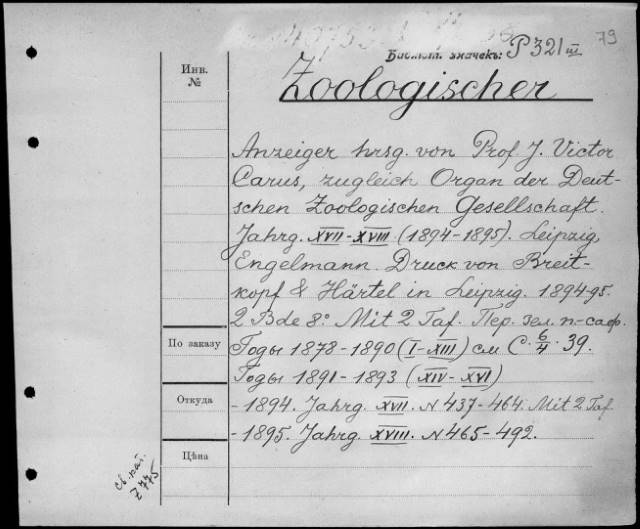 79
Библіот. значекъ: P 321 III
Инв. №
Zoologischer
Anzeiger hrsg. von Prof. J. Victor
Carus, zugleich Organ der Deut-
schen Zoologischen Gesellschaft.
Jahrg. XVII-XVIII. (1894-1895). Leipzig,
Engelmann. Druck von Breit-
kopf & Härtel in Leipzig. 1894-95.
2 Bde 8.° Mit 2 Taf. Пер. зел. п-саф.
По заказу
Годы 1878-1890 (I-XIII) см С. 6/4. 39.
Годы 1891-1893 (XIV-XVI)
Откуда
-1894. Jahrg. XVII. N 437-464. Mit 2 Taf.
-1895. Jahrg. XVIII. N 465-492.
Цѣна
св. кат.
Z 775